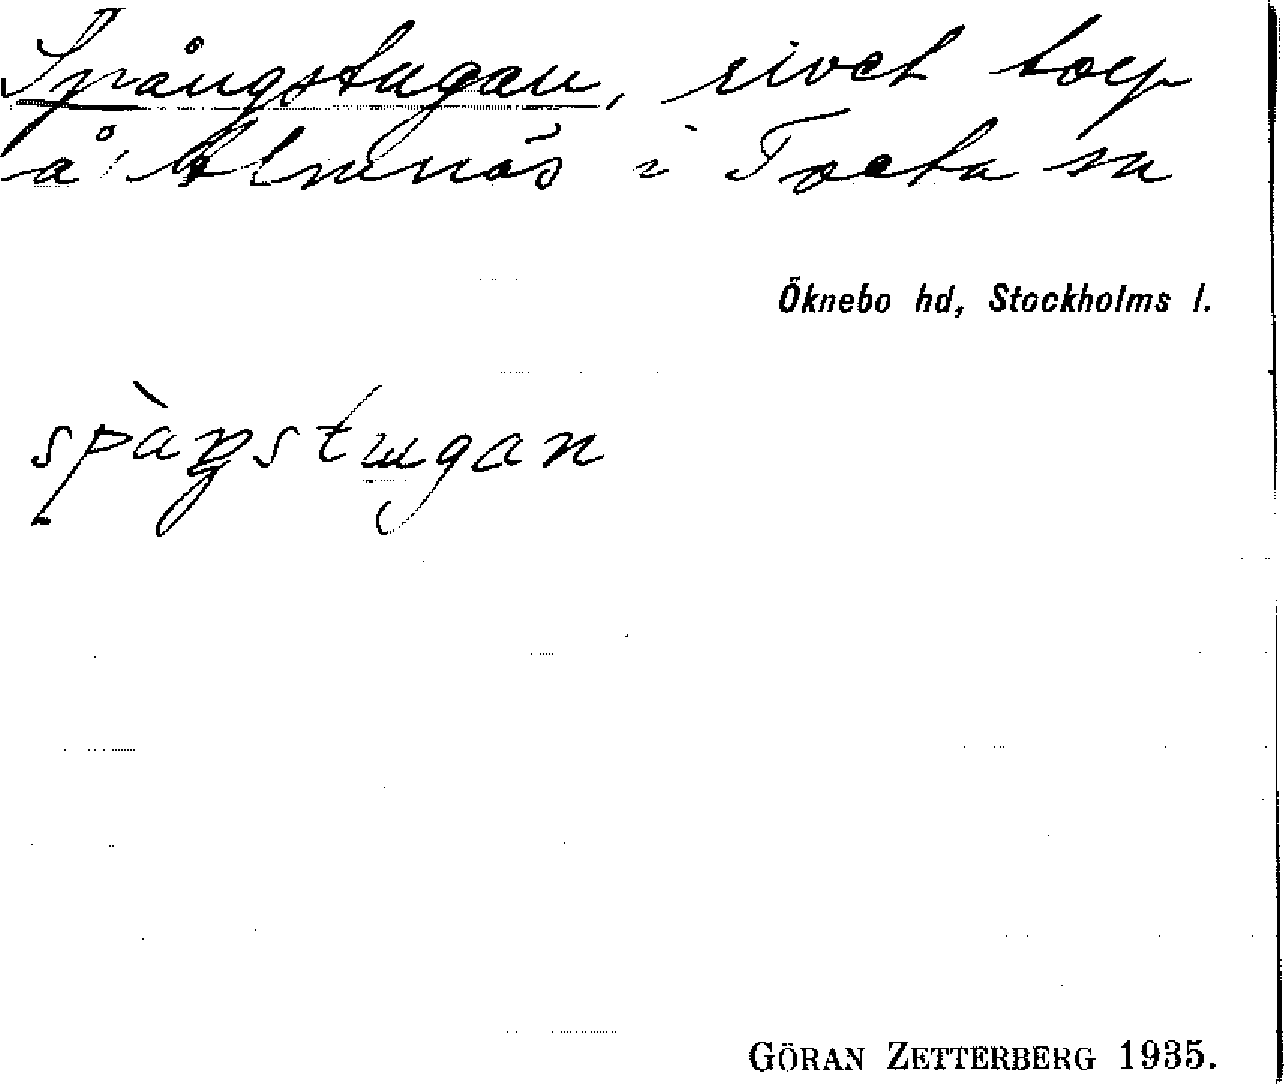 Spångstugan, rivet torp
å Almnäs i Tveta sn
Öknebo hd, Stockholms l.
spàŋstɯgan
GÖRAN ZETTERBERG 1935.